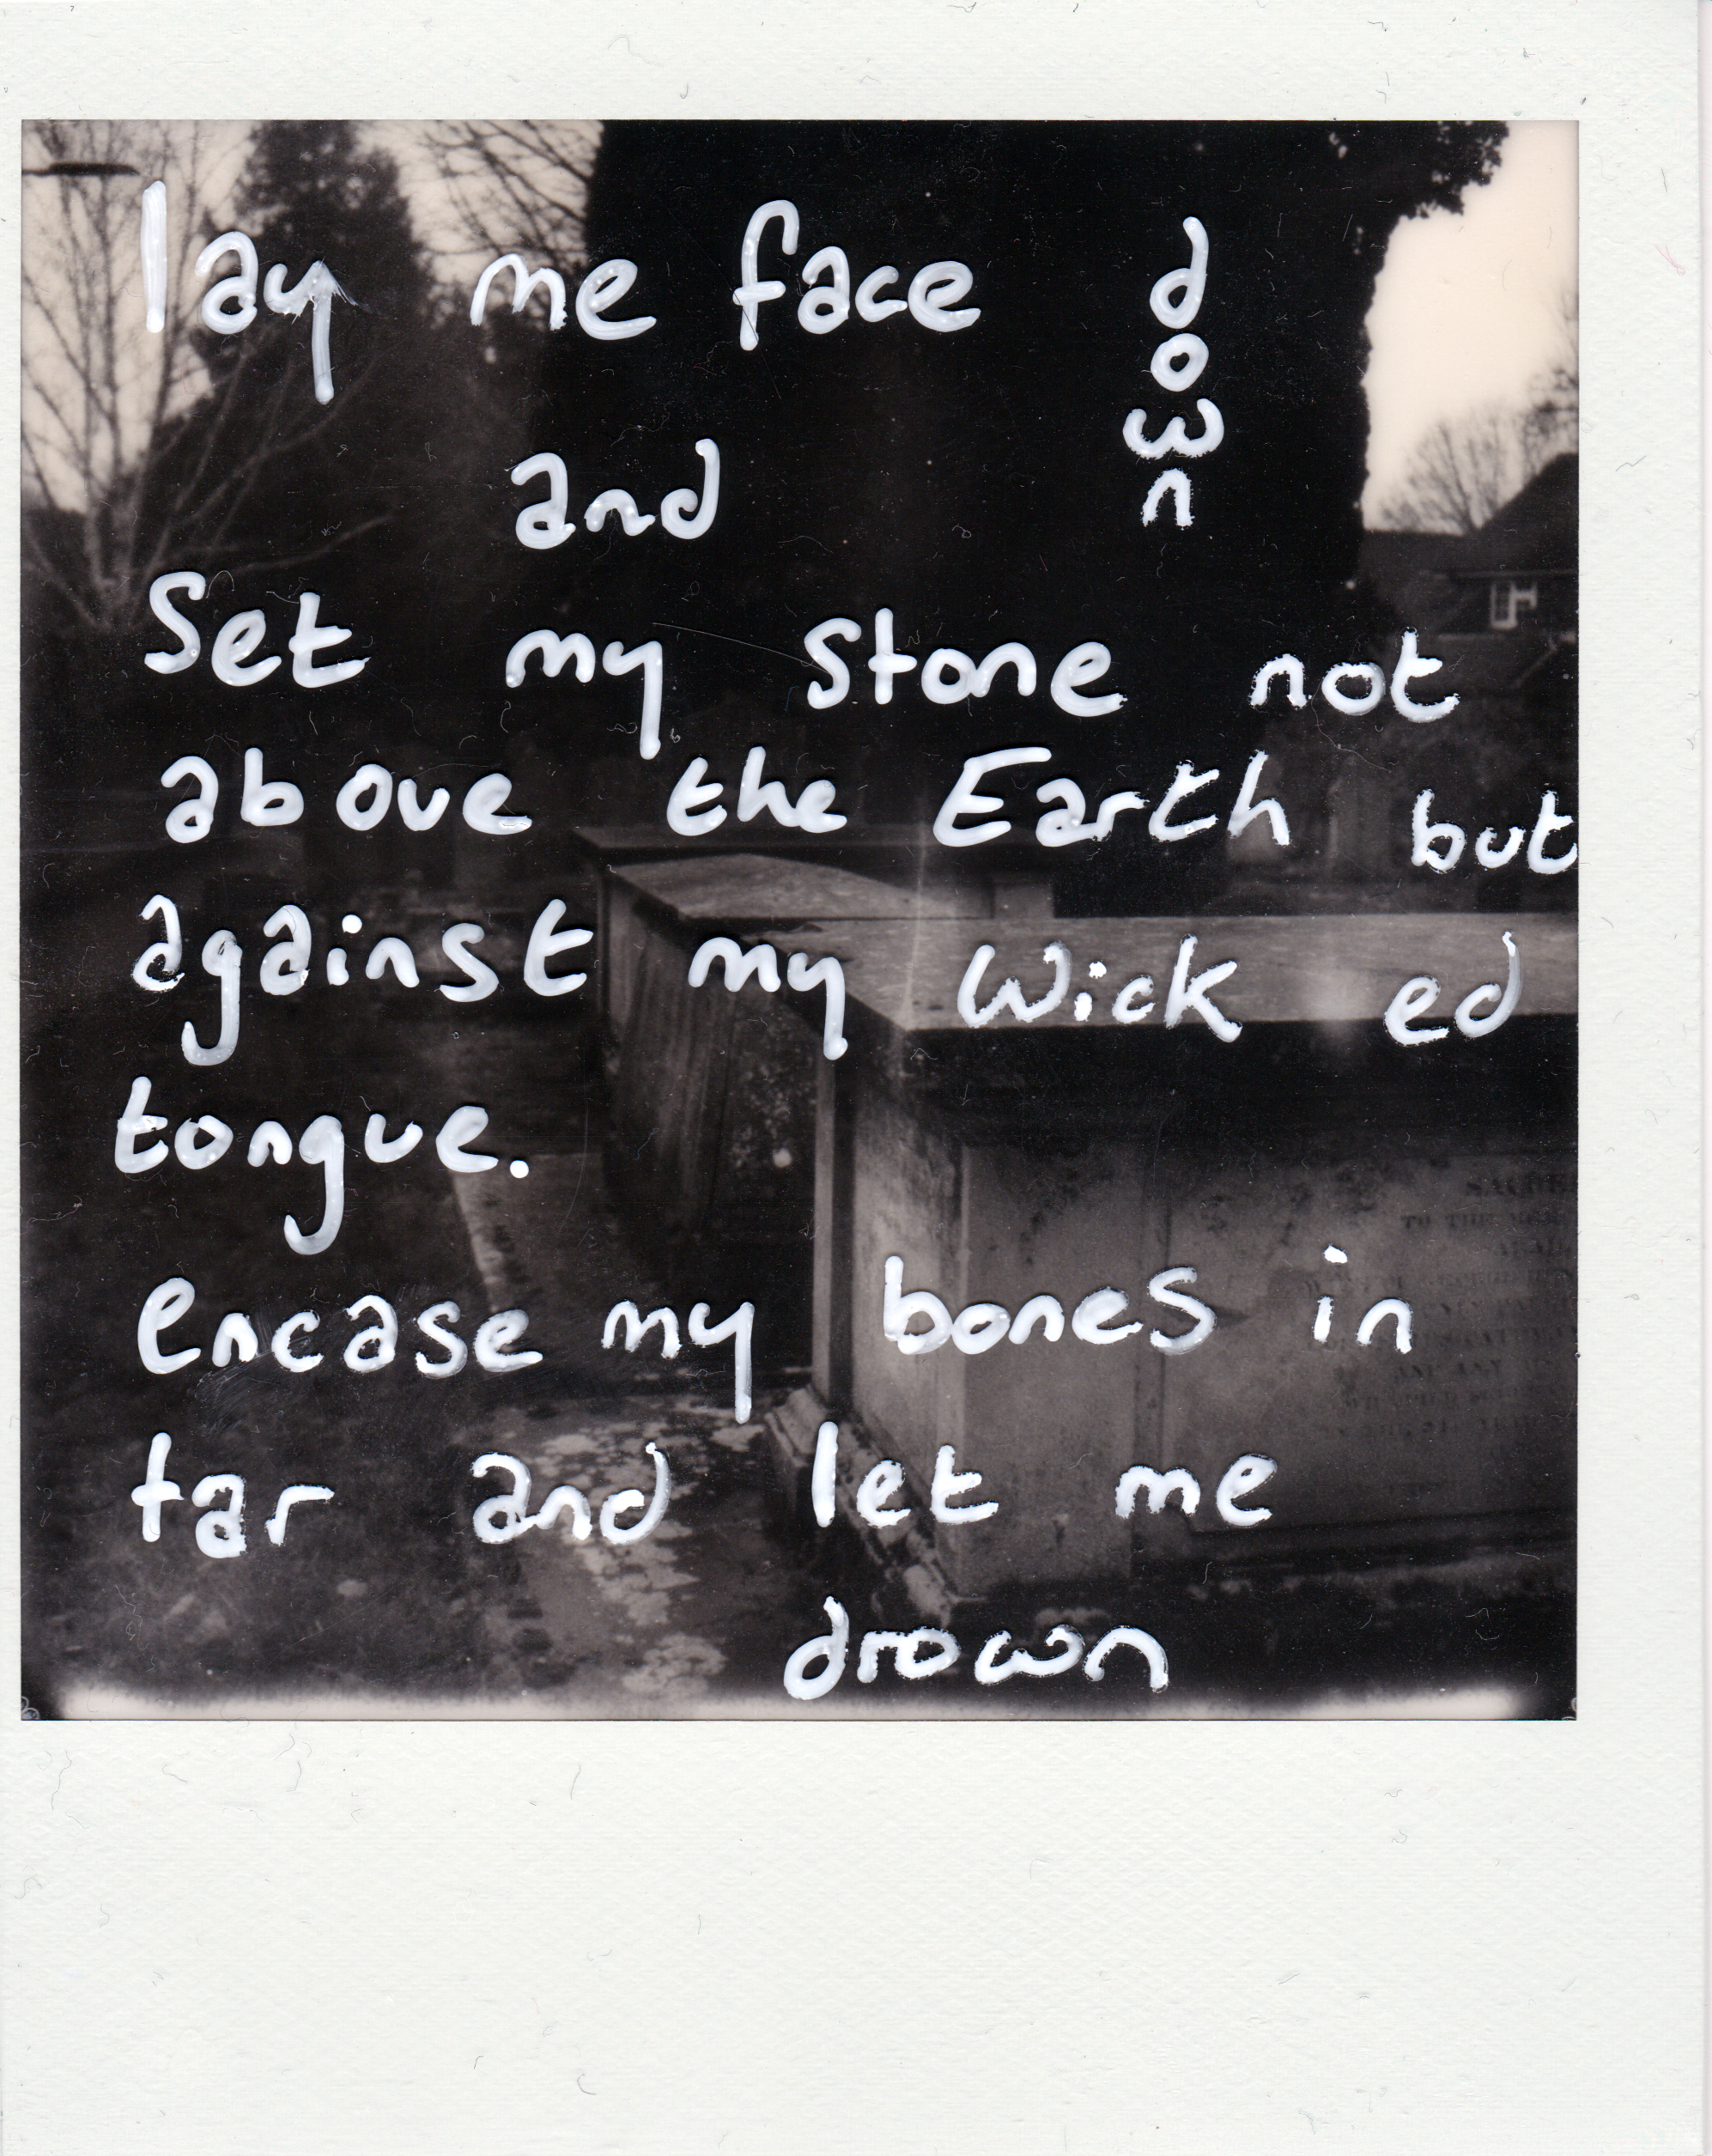 lay me face down
and
Set my stone not
above the Earth but
against my Wick ed
tongue.
encase my bones in
tar and let me
drown
TO THE